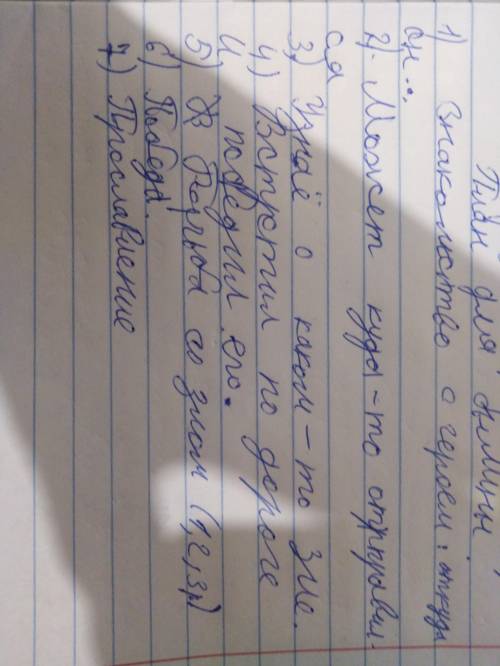 План для былины
1) Знакомство с героем: откуда
он...
2) Может куда-то отправил-
ся
3) Узнаё о каком-то зле.
4) Встустил по дороге
и победил его.
5) Борьба со злом (1,2,3р)
6) Победа.
7) Прославление